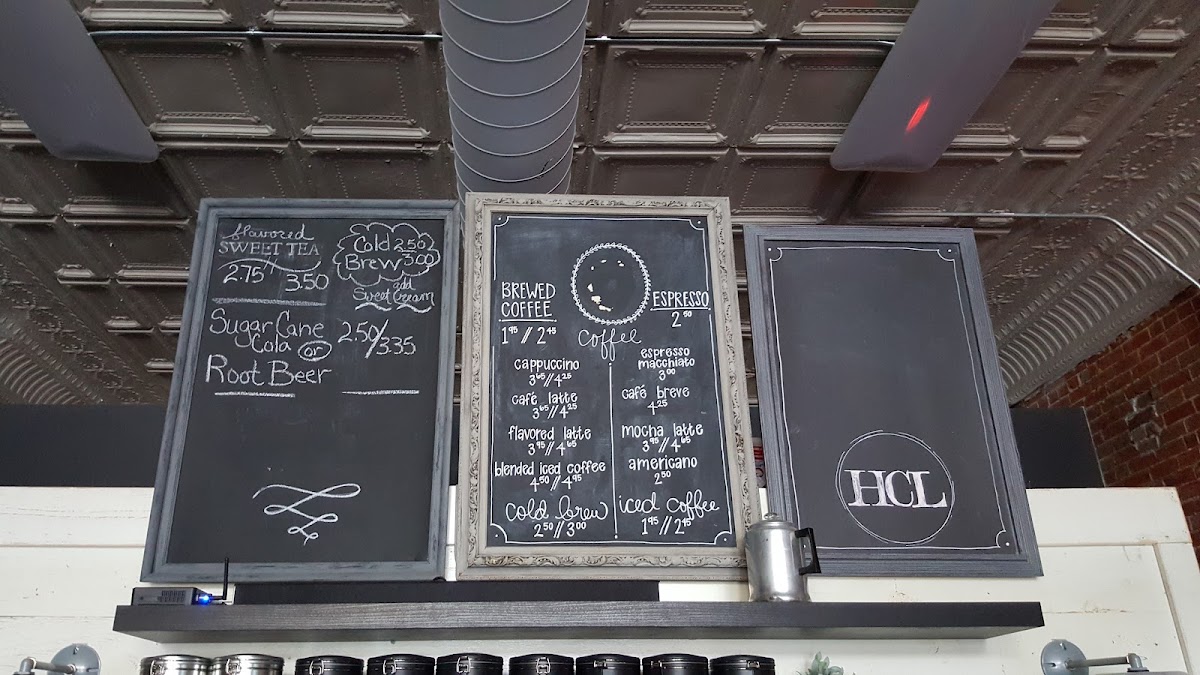 flavored
SWEET TEA
2.75 3.50
Cold 2.50
Brew 3.00
add
Sweet Cream
Sugar Cane
Cola or
2.50/3.35
Root Beer
BREWED
COFFEE
1.95 // 2.45
coffee
ESPRESSO
2.50
cappuccino
3.65 // 4.25
café latte
3.65 // 4.25
flavored latte
3.95 // 4.65
blended iced coffee
4.50 // 4.95
cold brew
2.50 // 3.00
espresso
macchiato
3.00
café breve
4.25
mocha latte
3.95 // 4.65
americano
2.50
iced coffee
1.95 // 2.45
HCL